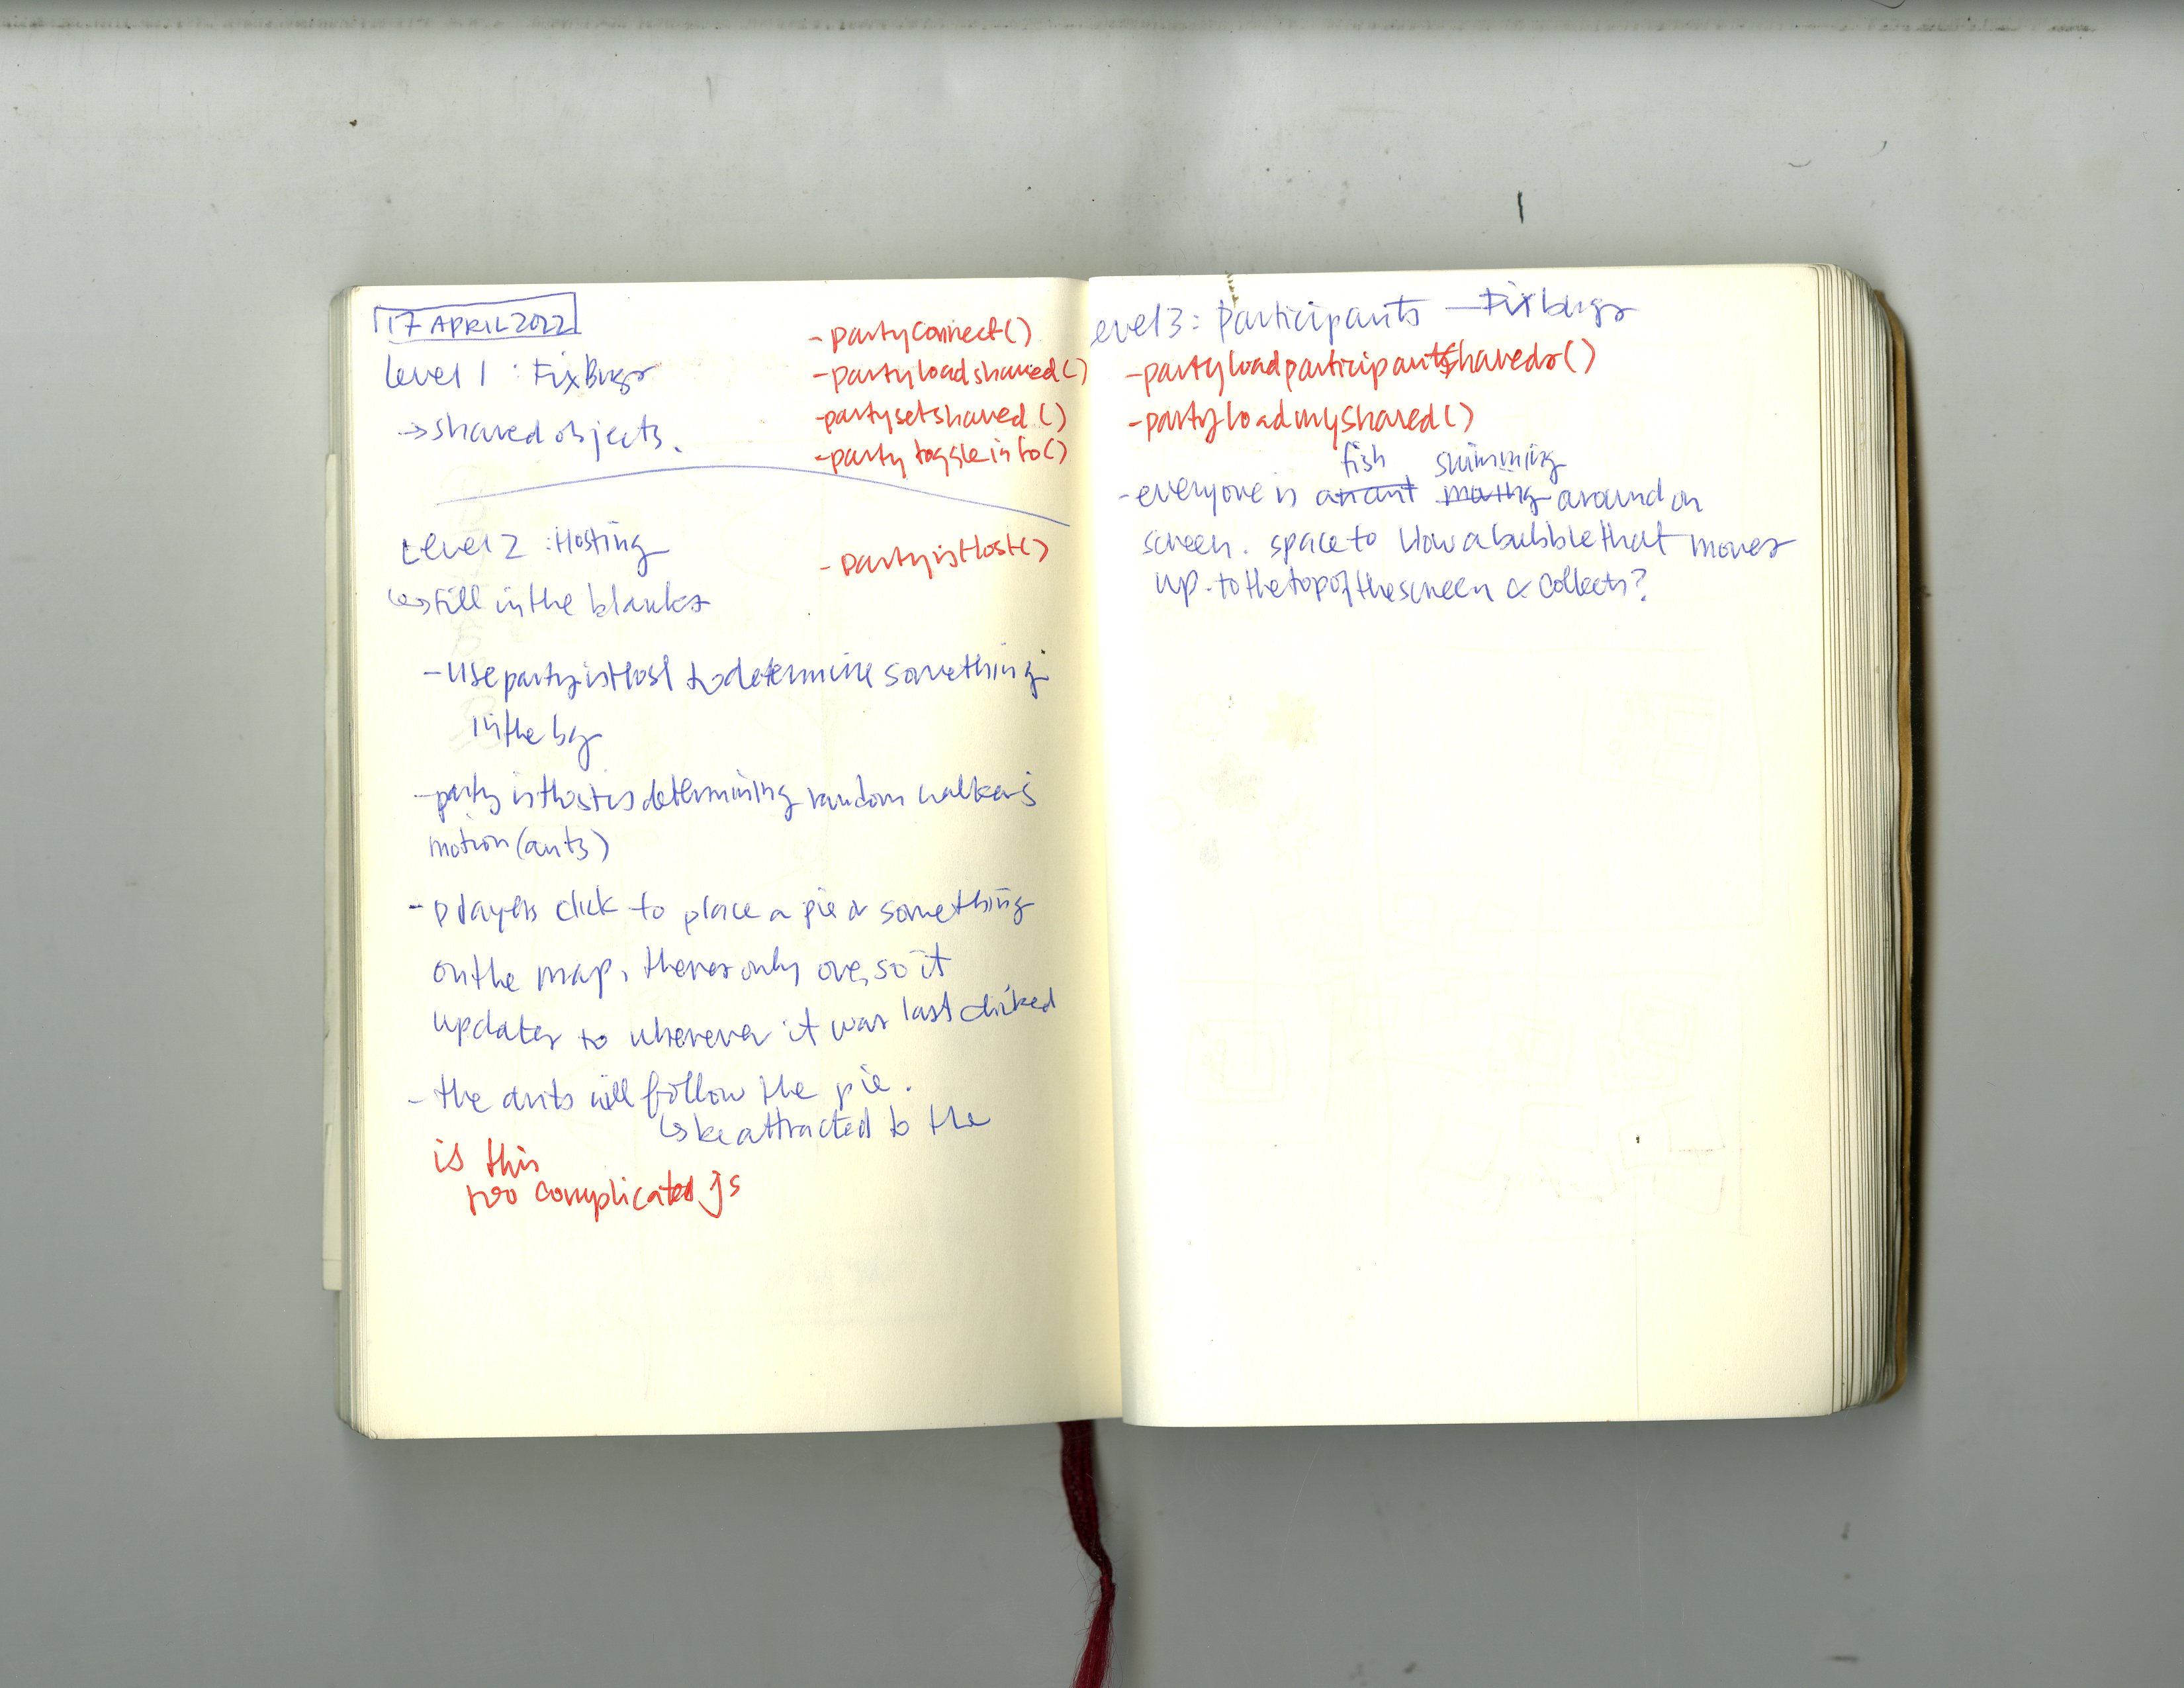 17 APRIL 2022
Level 1 : Fix Bugs
→ shared objects.
- partyConnect()
- partyloadshared()
- partysetshared()
- partytoggleinfo()
Level 2 : Hosting
↳ Fill in the blanks
- partyisHost()
- Use partyisHost to determine something
in the bg
- party isHost is determining random walker's
motion (ants)
- players click to place a pie or something
on the map, theres only one, so it
updates to wherever it was last clicked
- the ants will follow the pie.
↳ be attracted to the
is this
too complicated js
evel 3: Participants — Fix bugs
- partyloadparticipantshareds()
- partyloadmyshared()
fish swimming
- everyone is an ant moving around on
screen. space to blow a bubble that moves
up to the top of the screen & collects?